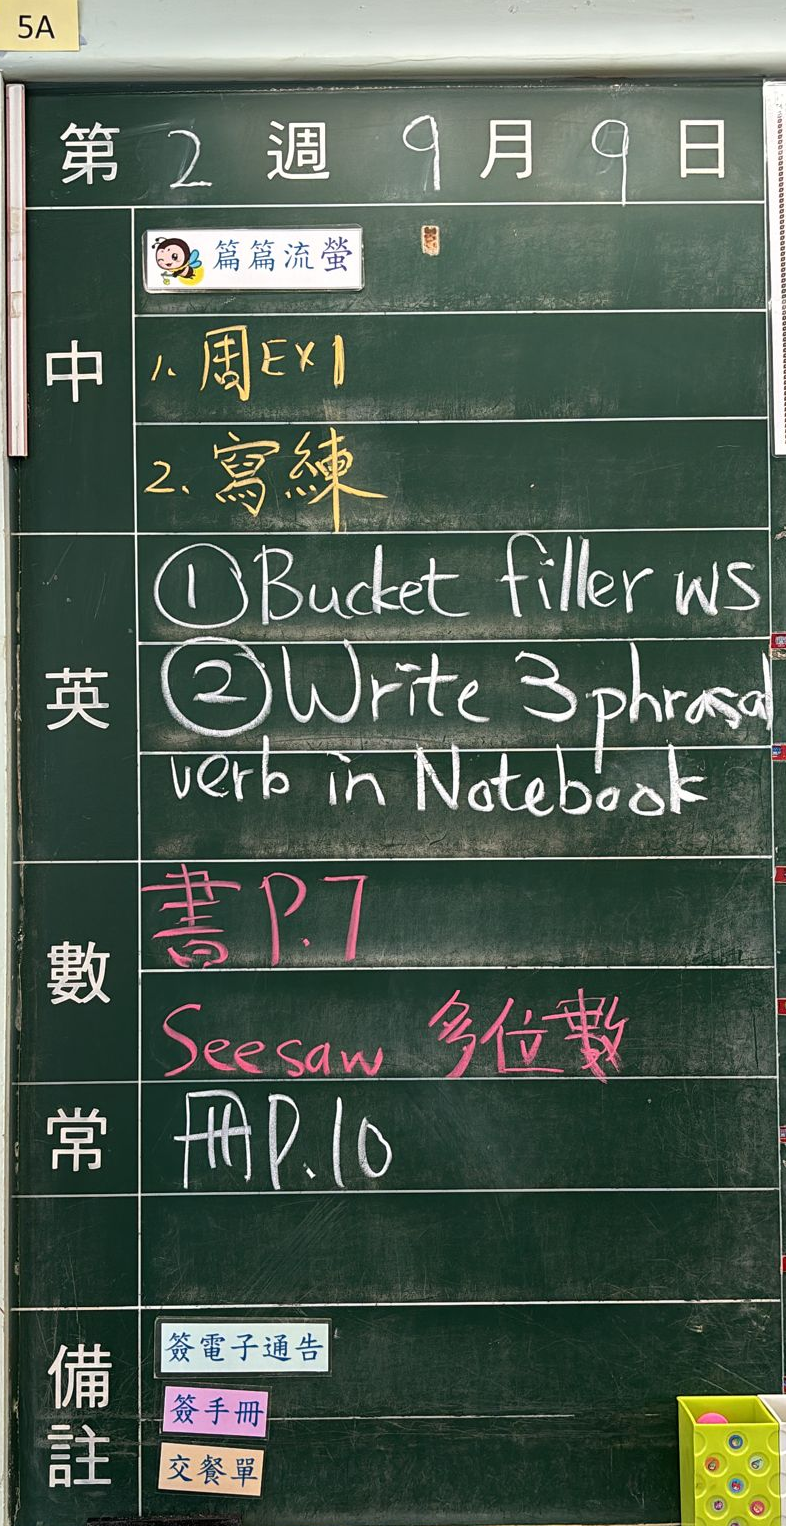 5A
第 2 週 9 月 9 日
中
篇篇流螢
1. 周EX1
2. 寫練
英
① Bucket filler WS
② Write 3 phrasal
verb in Notebook
數
書 P.7
Seesaw 多位數
常
冊P.10
備註
簽電子通告
簽手冊
交餐單